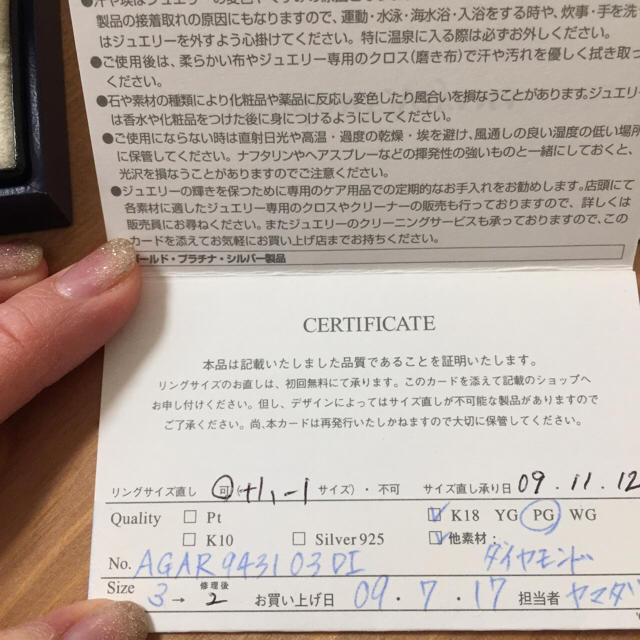 ●汗や埃はジュエリーの変色やくすみの原因と
製品の接着取れの原因にもなりますので、運動・水泳・海水浴・入浴をする時や、炊事・手を洗
はジュエリーを外すよう心掛けてください。特に温泉に入る際は必ずお外しください。
●ご使用後は、柔らかい布やジュエリー専用のクロス(磨き布)で汗や汚れを優しく拭き取っ
ください。
●石や素材の種類により化粧品や薬品に反応し変色したり風合いを損なうことがあります。ジュエリー
は香水や化粧品をつけた後に身につけるようにしてください。
●ご使用にならない時は直射日光や高温・過度の乾燥・埃を避け、風通しの良い湿度の低い場所
に保管してください。ナフタリンやヘアスプレーなどの揮発性の強いものと一緒にしておくと、
光沢を損なうことがありますのでご注意ください。
●ジュエリーの輝きを保つために専用のケア用品での定期的なお手入れをお勧めします。店頭にて
各素材に適したジュエリー専用のクロスやクリーナーの販売も行っておりますので、詳しくは
販売員にお尋ねください。またジュエリーのクリーニングサービスも承っておりますので、この
カードを添えてお気軽にお買い上げ店までお持ちください。
ゴールド・プラチナ・シルバー製品
CERTIFICATE
本品は記載いたしました品質であることを証明いたします。
リングサイズのお直しは、初回無料にて承ります。このカードを添えて記載のショップへ
お申し付けください。但し、デザインによってはサイズ直しが不可能な製品がありますので
ご了承ください。尚、本カードは再発行いたしかねますので大切に保管してください。
リングサイズ直し 可 (+1,-1 サイズ)・不可 サイズ直し承り日 09.11.12
Quality □ Pt ☑ K18 YG PG WG
□ K10 □ Silver925 ☑ 他素材: ダイヤモンド
No. AGAR943103DI
Size 3 → 修理後 2 お買い上げ日 09.7.17 担当者 ヤマダ